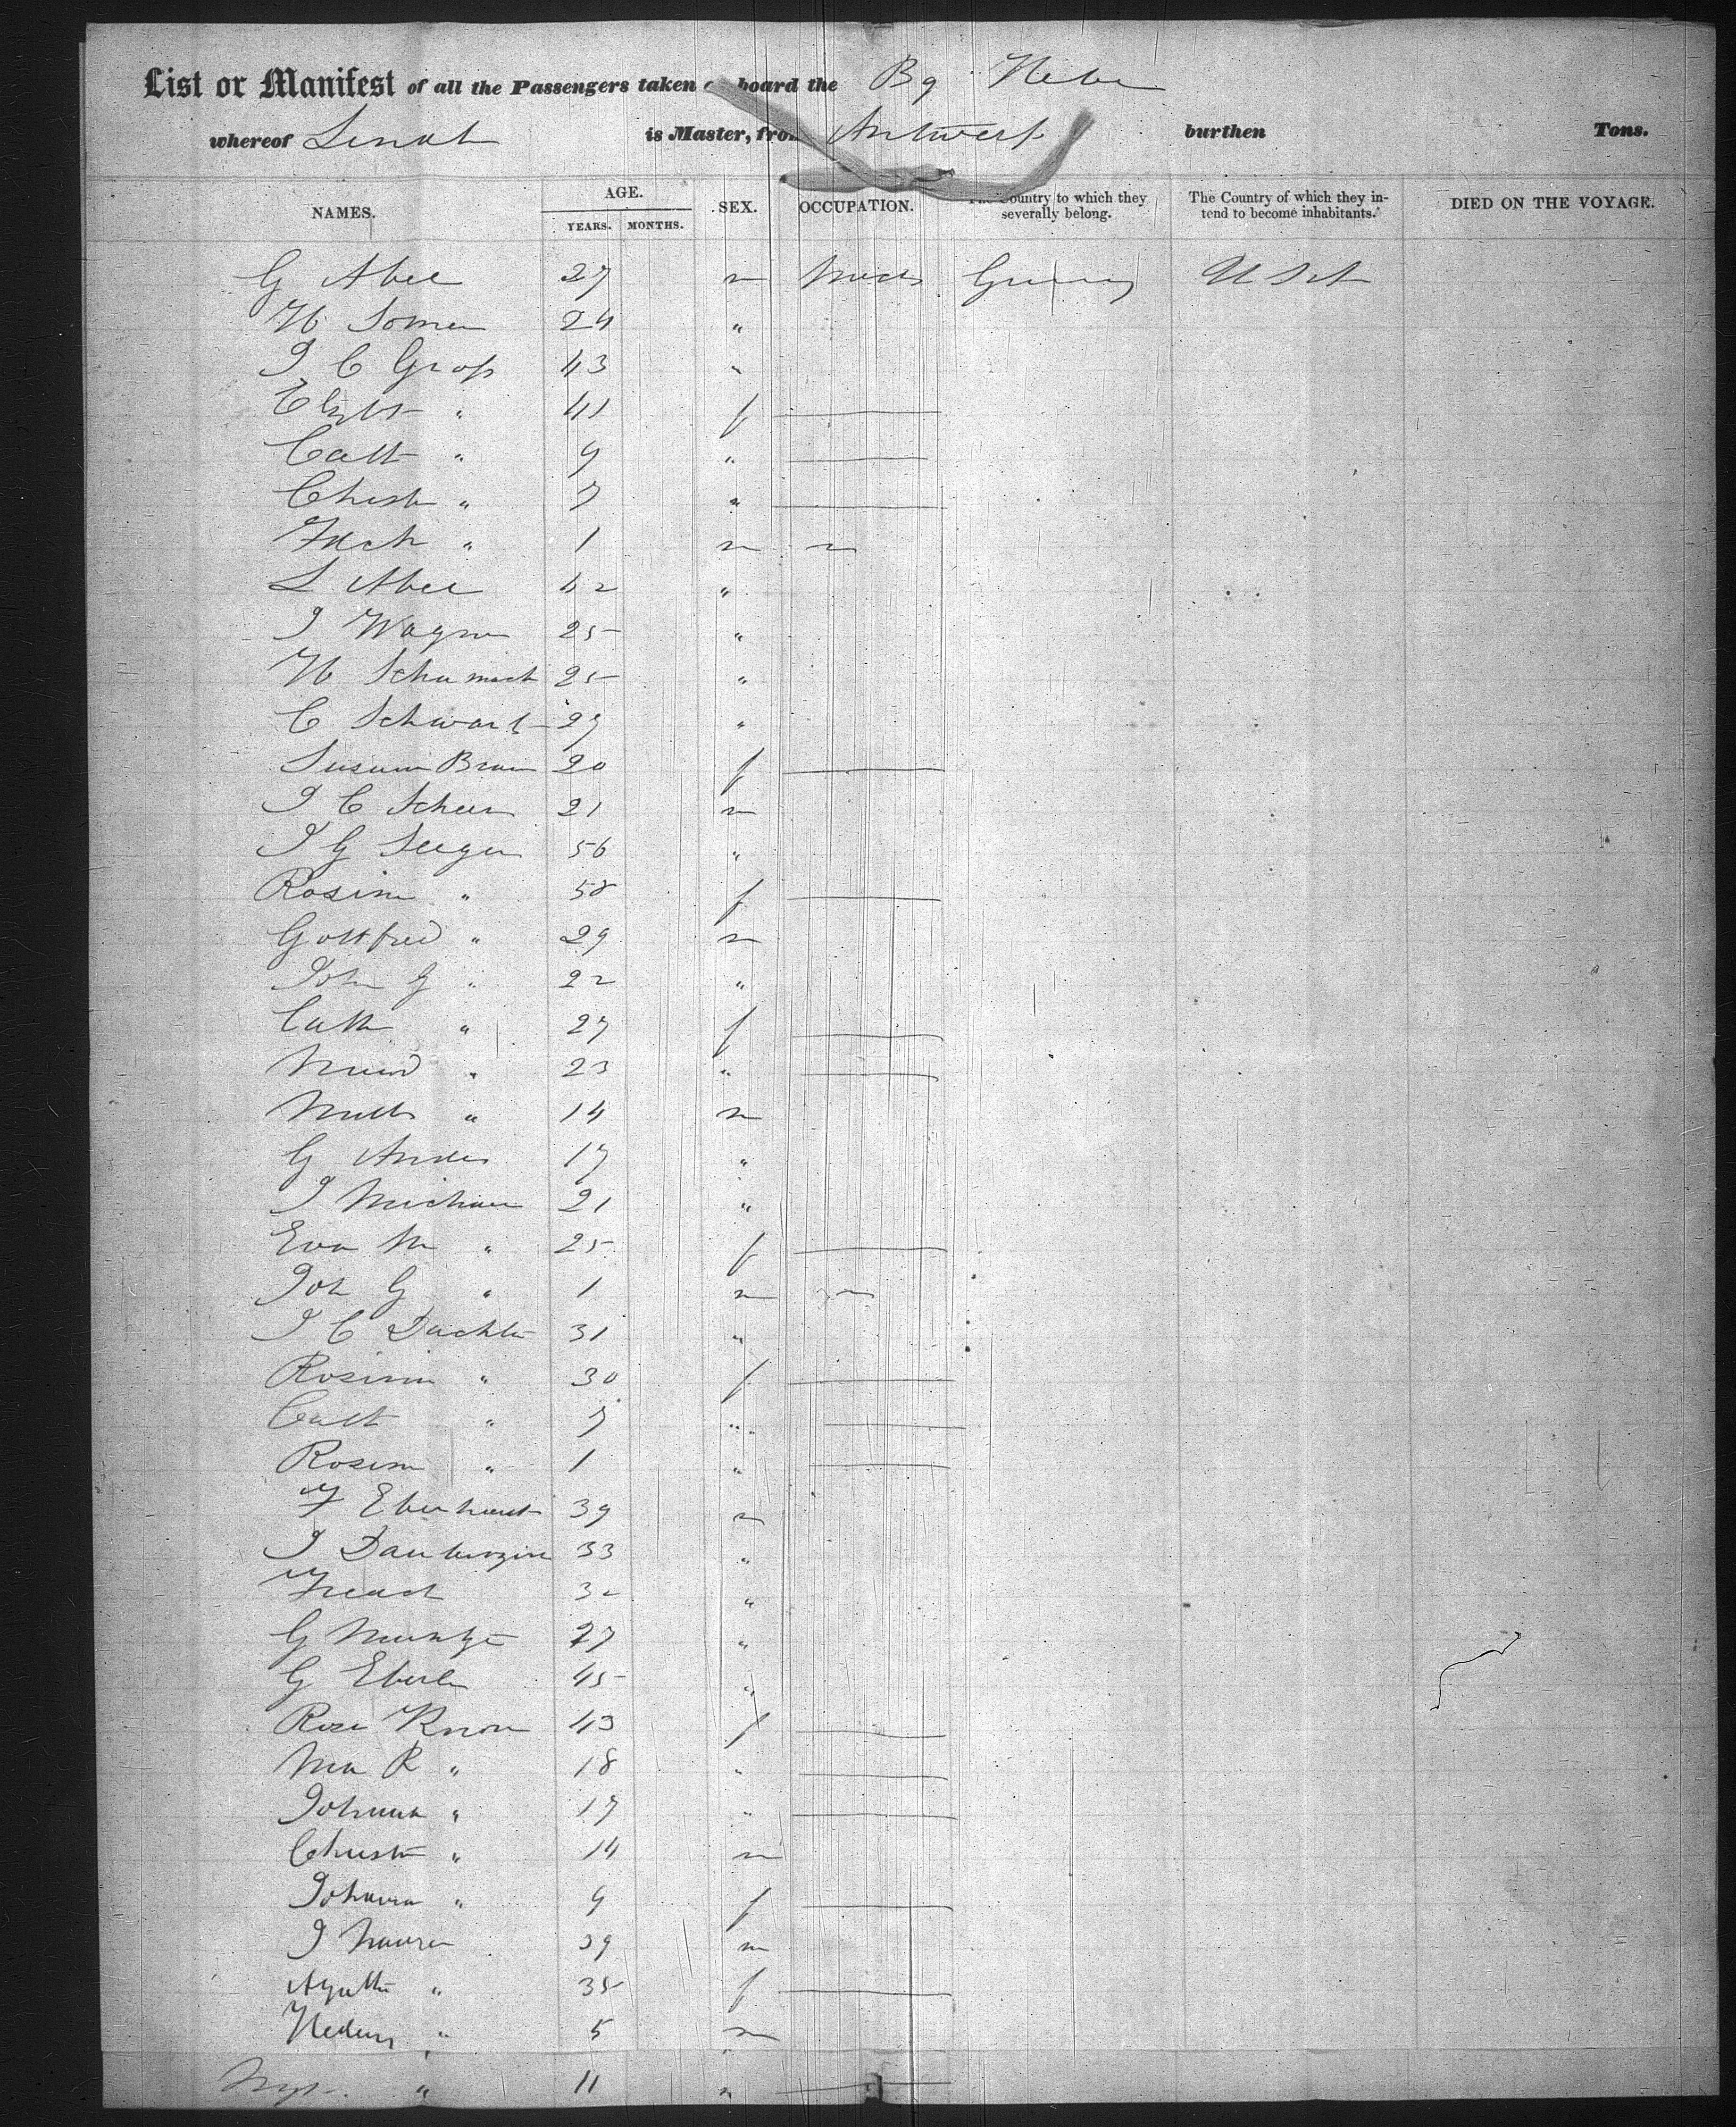 List or Manifest of all the Passengers taken on board the Bg Hebe
whereof is Master, from Antwerp burthen Tons.
NAMES. AGE. YEARS. MONTHS. SEX. OCCUPATION. The Country to which they severally belong. The Country of which they intend to become inhabitants. DIED ON THE VOYAGE.
G Abel 27 m Germany USA
H Somer 24 "
J C Gross 43 "
Elizbt " 41 f
Cath " 9 "
Christ " 7 "
" 1 m
L Abel 42 "
J Wagner 25 "
H Schumach 25 "
C Schwart 27 "
Susann Braun 20 f
J C Scheer 21 m
J G Seeger 56 "
Rosina " 58 f
Gottfried " 29 m
John G " 22 "
Cath " 27 f
" 23 "
" 14 m
G 17 "
J 21 "
Eva M " 25 f
Joh G " 1 m
J C Dachler 31 "
Rosina " 30 f
Cath " 7 "
Rosina " 1 "
F Eberhardt 39 m
J 33 "
"
G 27 "
G Eberle 45 "
Rosi 43 f
Ma R " 18 "
Johanna " 17 "
Christ " 14 m
Johanna " 9 f
J 39 m
Agatha " 35 f
" 5 m
" 11 "